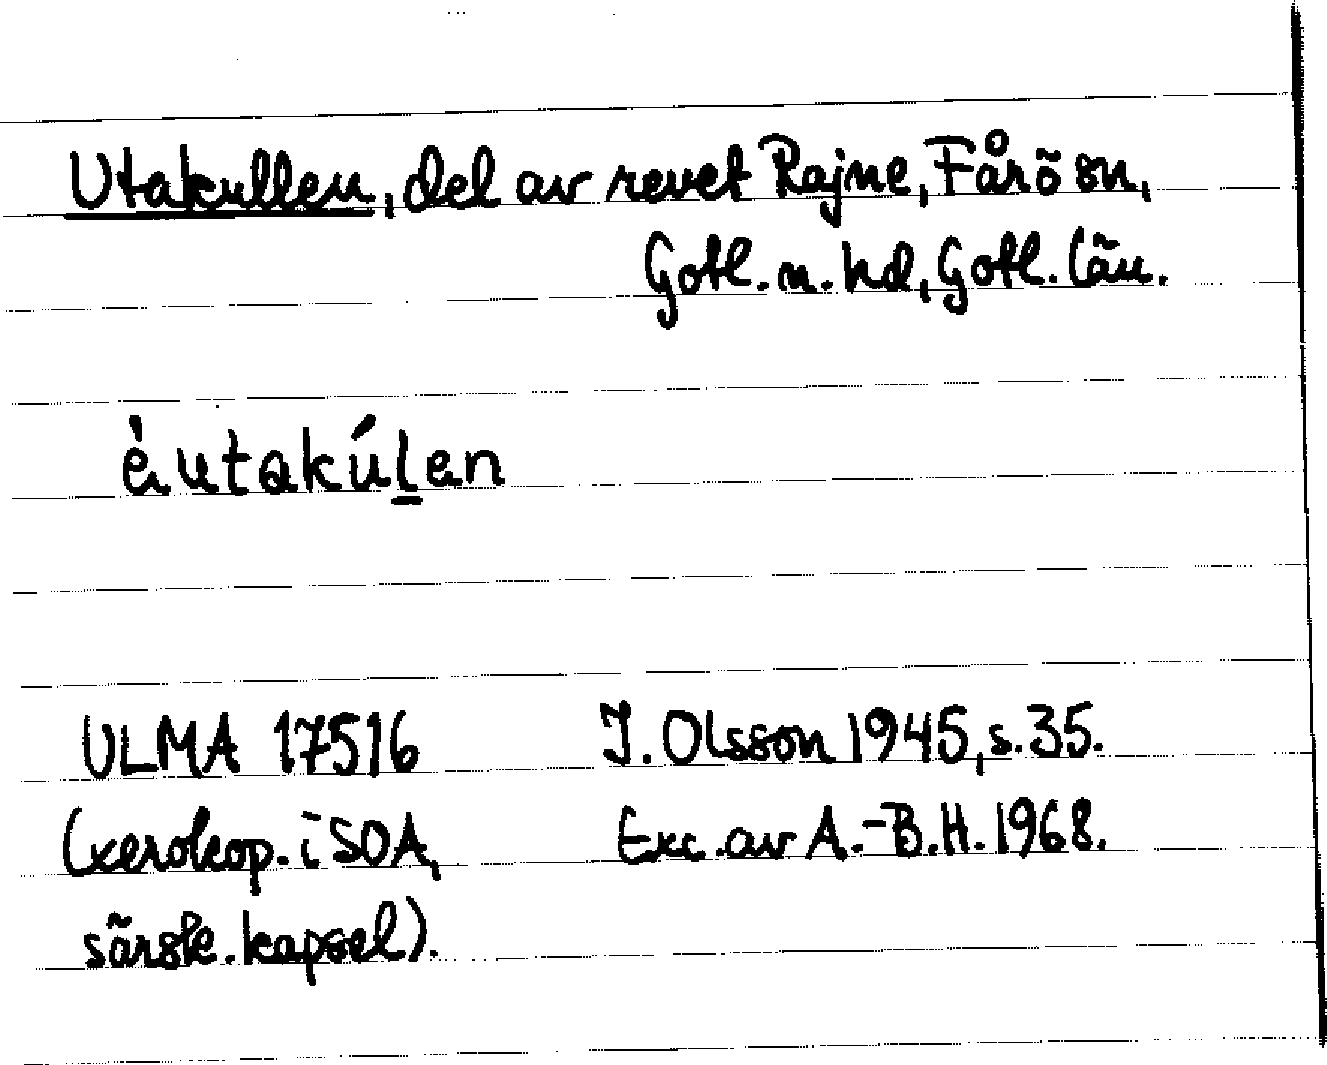 Utakullen, del av revet Rajne, Fårö sn,
Gotl. n. hd, Gotl. län.
èutakúl̲en
ULMA 17516
J. Olsson 1945, s. 35.
(xerokop. i SOA,
Exc. av A.-B.H. 1968.
särsk. kapsel).